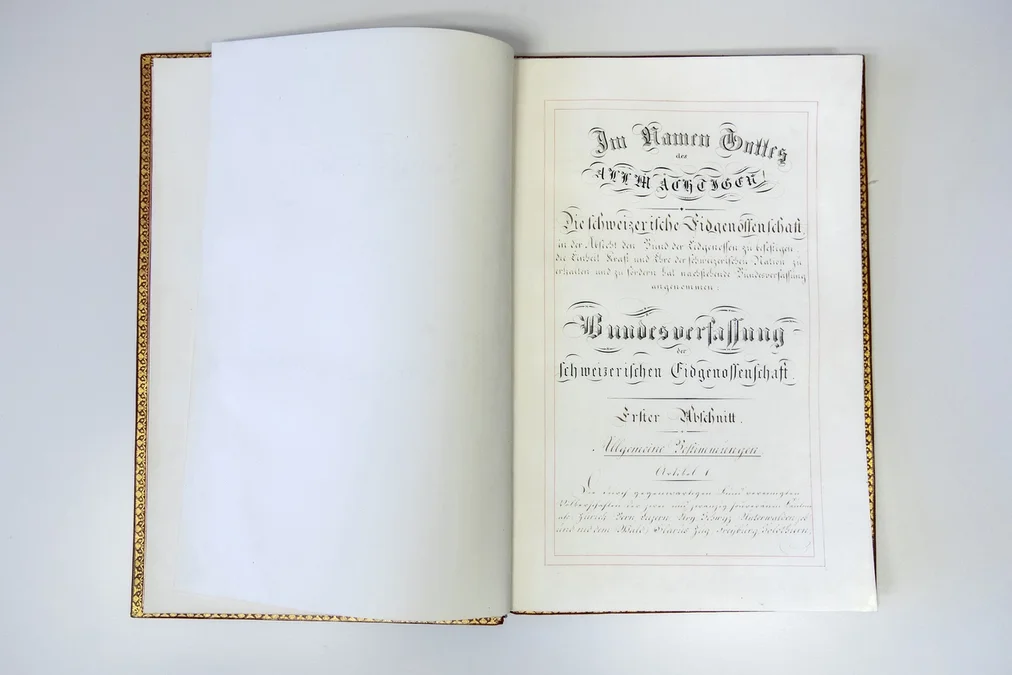 Im Namen Gottes
des
ALLMÄCHTIGEN!
Die schweizerische Eidgenossenschaft,
in der Absicht den Bund der Eidgenossen zu befestigen,
die Einheit Kraft und Ehre der schweizerischen Nation zu
erhalten und zu fördern hat nachstehende Bundesverfassung
angenommen:
Bundesverfassung
der
schweizerischen Eidgenossenschaft.
Erster Abschnitt.
Allgemeine Bestimmungen.
Artikel 1
Die durch gegenwärtigen Bund vereinigten
Völkerschaften der zwei und zwanzig souveränen Kantone
als: Zürich Bern Luzern Ury Schwyz Unterwalden
und nid dem Wald Glarus Zug Freyburg Solothurn